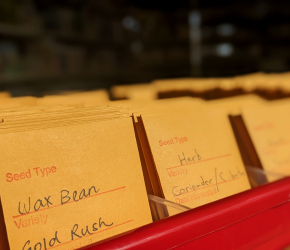 Seed Type
Wax Bean
Variety
Gold Rush
Seed Type
Herb
Variety
Coriander/